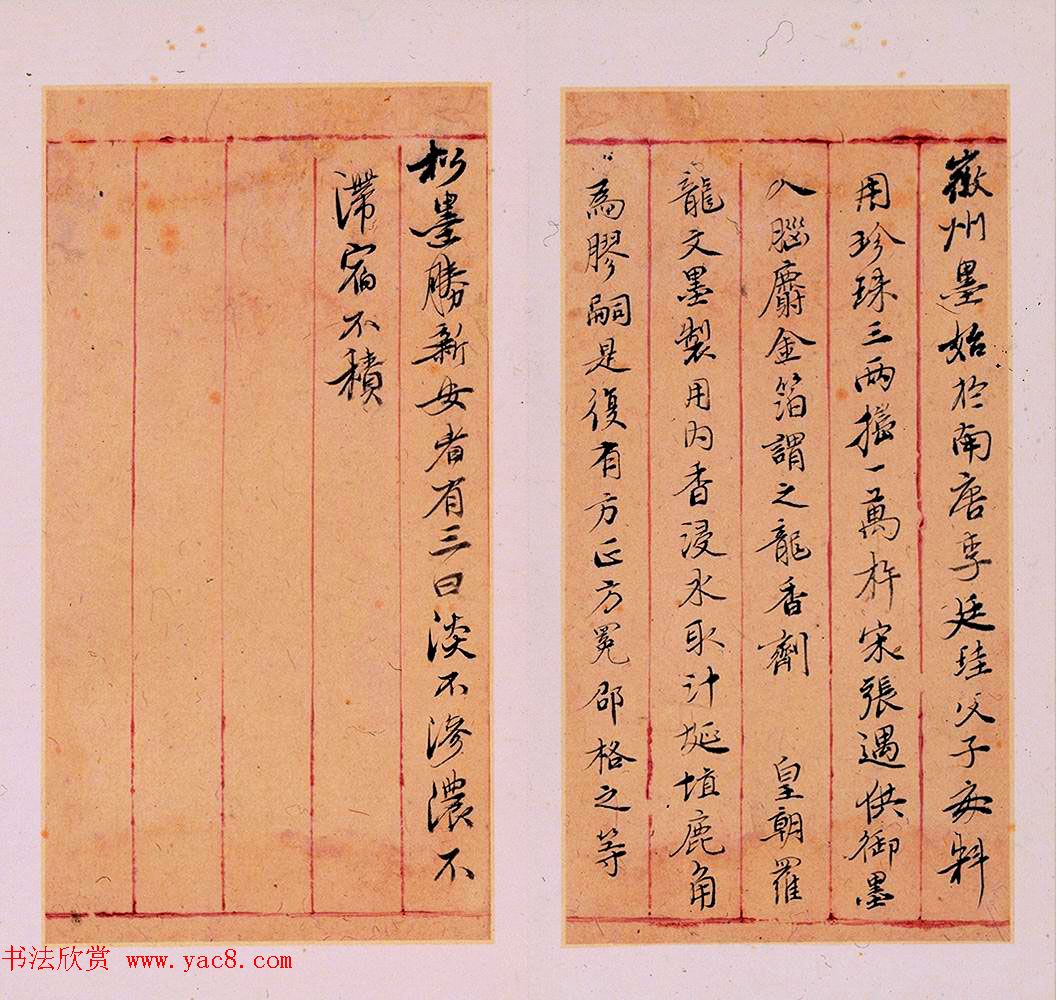 徽州墨始於南唐李廷珪父子每料
用珍珠三兩搗一萬杵宋張遇供御墨
入腦麝金箔謂之龍香劑 皇朝羅
龍文墨製用內香浸水取汁埏埴鹿角
為膠嗣是復有方正方冕邵格之等
松墨勝新安者有三曰淡不滲濃不
滯宿不積
书法欣赏 www.yac8.com